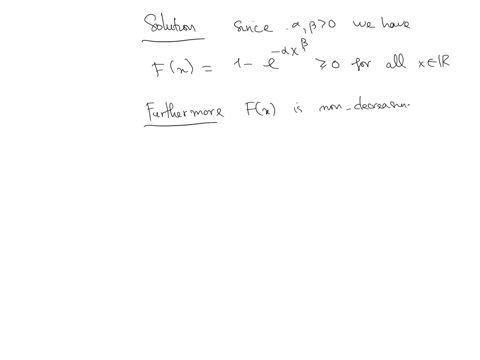 Solution Since α, β>0 we have
F(x) = 1 - e^{-αx^β} ≥ 0 for all x∈ℝ
Furthermore F(x) is non-decreasin